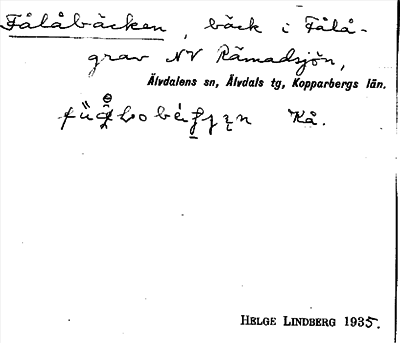 Fålåbäcken, bäck i Fålå-
grav NV Råmadsjön,
Älvdalens sn, Älvdals tg, Kopparbergs län.
Kå.
HELGE LINDBERG 1935.